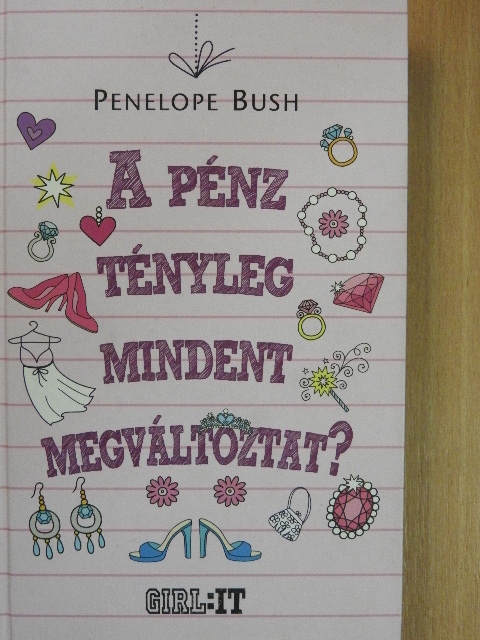 PENELOPE BUSH
A PÉNZ
TÉNYLEG
MINDENT
MEGVÁLTOZTAT?
GIRL:IT